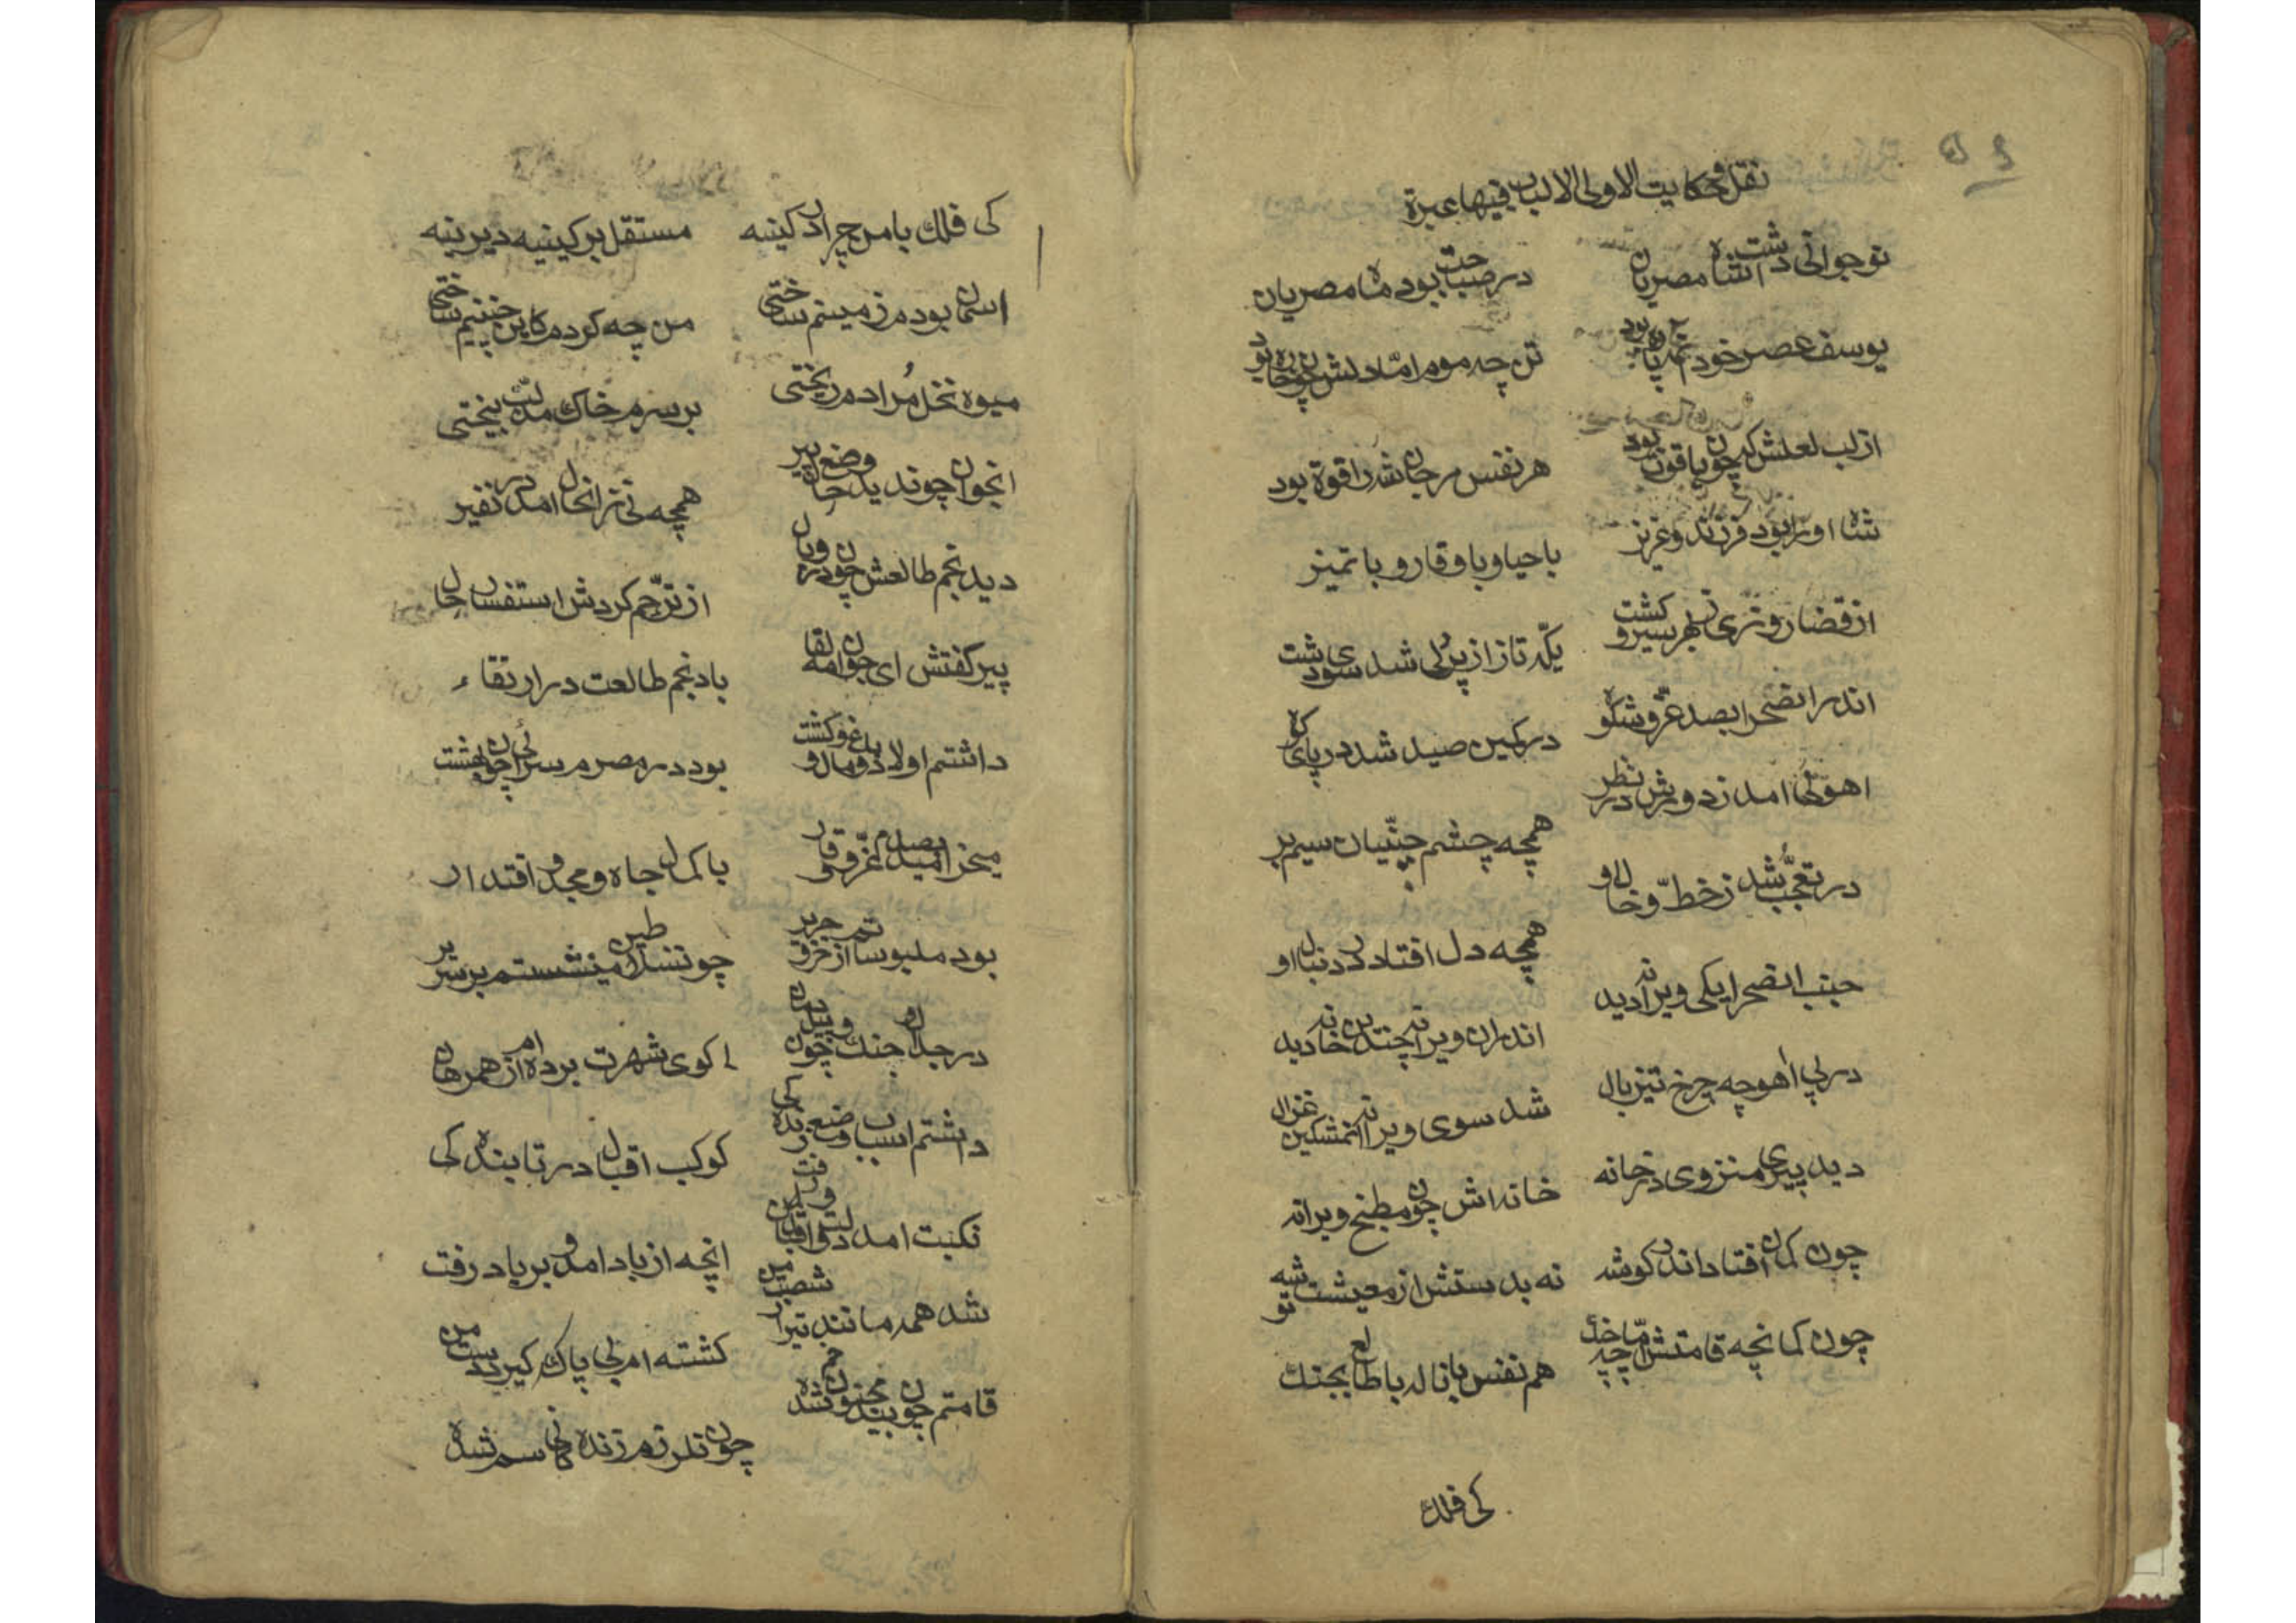 نقل و حکایت الاولی الالباب فیها عبرة
نوجوانی داشت شاه مصریان
در صباحت بود ماه مصریان
یوسف عصر خود
تن چه موم اما دلش چون خاره بود
از لب لعلش که چون یاقوت بود
هر نفس مرجانش را قوة بود
شاه او را بود فرزند و عزیز
با حیا و با وقار و با تمیز
از قضا روزی بهر سیر و کشت
یکه تاز از پل شد سوی دشت
اندر انصحرا بصد عز و شکوه
در کمین صید شد در پای کوه
اهوئی امد ز دورش در نظر
همچه چشم چینیان سیم بر
در تعجب شد ز خط و خال او
همچه دل افتاد در دنبال او
جنب انصحرا یکی ویرانه دید
اندران ویرانه چندین خانه دید
در پی اهو چه چرخ تیز بال
شد سوی ویرانه انمشکین غزال
دید پیری منزوی در خانه
خانه اش چون مطبخ ویرانه
چون کمان افتاد اندر کوشه
نه بدستش از معیشت توشه
چون کمانچه قامتش اما چه خدنک
هم نفس با ناله با طالع بجنک
کی فلك
کی فلك با من چرا در کینه
مستقل بر کینه دیرینه
اسمان بودم زمینم ساختی
من چه کردم کاین چنینم ساختی
میوه نخل مرادم ریختی
بر سرم خاك مذلت بیختی
انجوان چو ندید حال و وضع پیر
همچه نی زانحال امد در نفیر
دید نجم طالعش چون در وبال
از ترحم کردش استفسار حال
پیر کفتش ای جوان مه لقا
باد نجم طالعت در ارتقاء
داشتم اولاد و مال و باغ و کشت
بود در مصرم سرائی چون بهشت
میخرامیدم بصد عز و وقار
با کمال جاه و مجد و اقتدار
بود ملبوسات از خز و حریر
چو نسلاطین مینشستم بر سریر
در جدل و جنك چون پیل دمان
کوی شهرت برده ام از همرهان
داشتم اسباب و وضع زندکی
کوکب اقبال در تابندکی
نکبت امد دولت و اقبال رفت
انچه از باد امد و بر باد رفت
شد همه مانند تیر از شصت من
کشته ام بی پاك کیر دست من
قامتم چون بید مجنون خم شده
چون نلرزم زندکانی سم شده